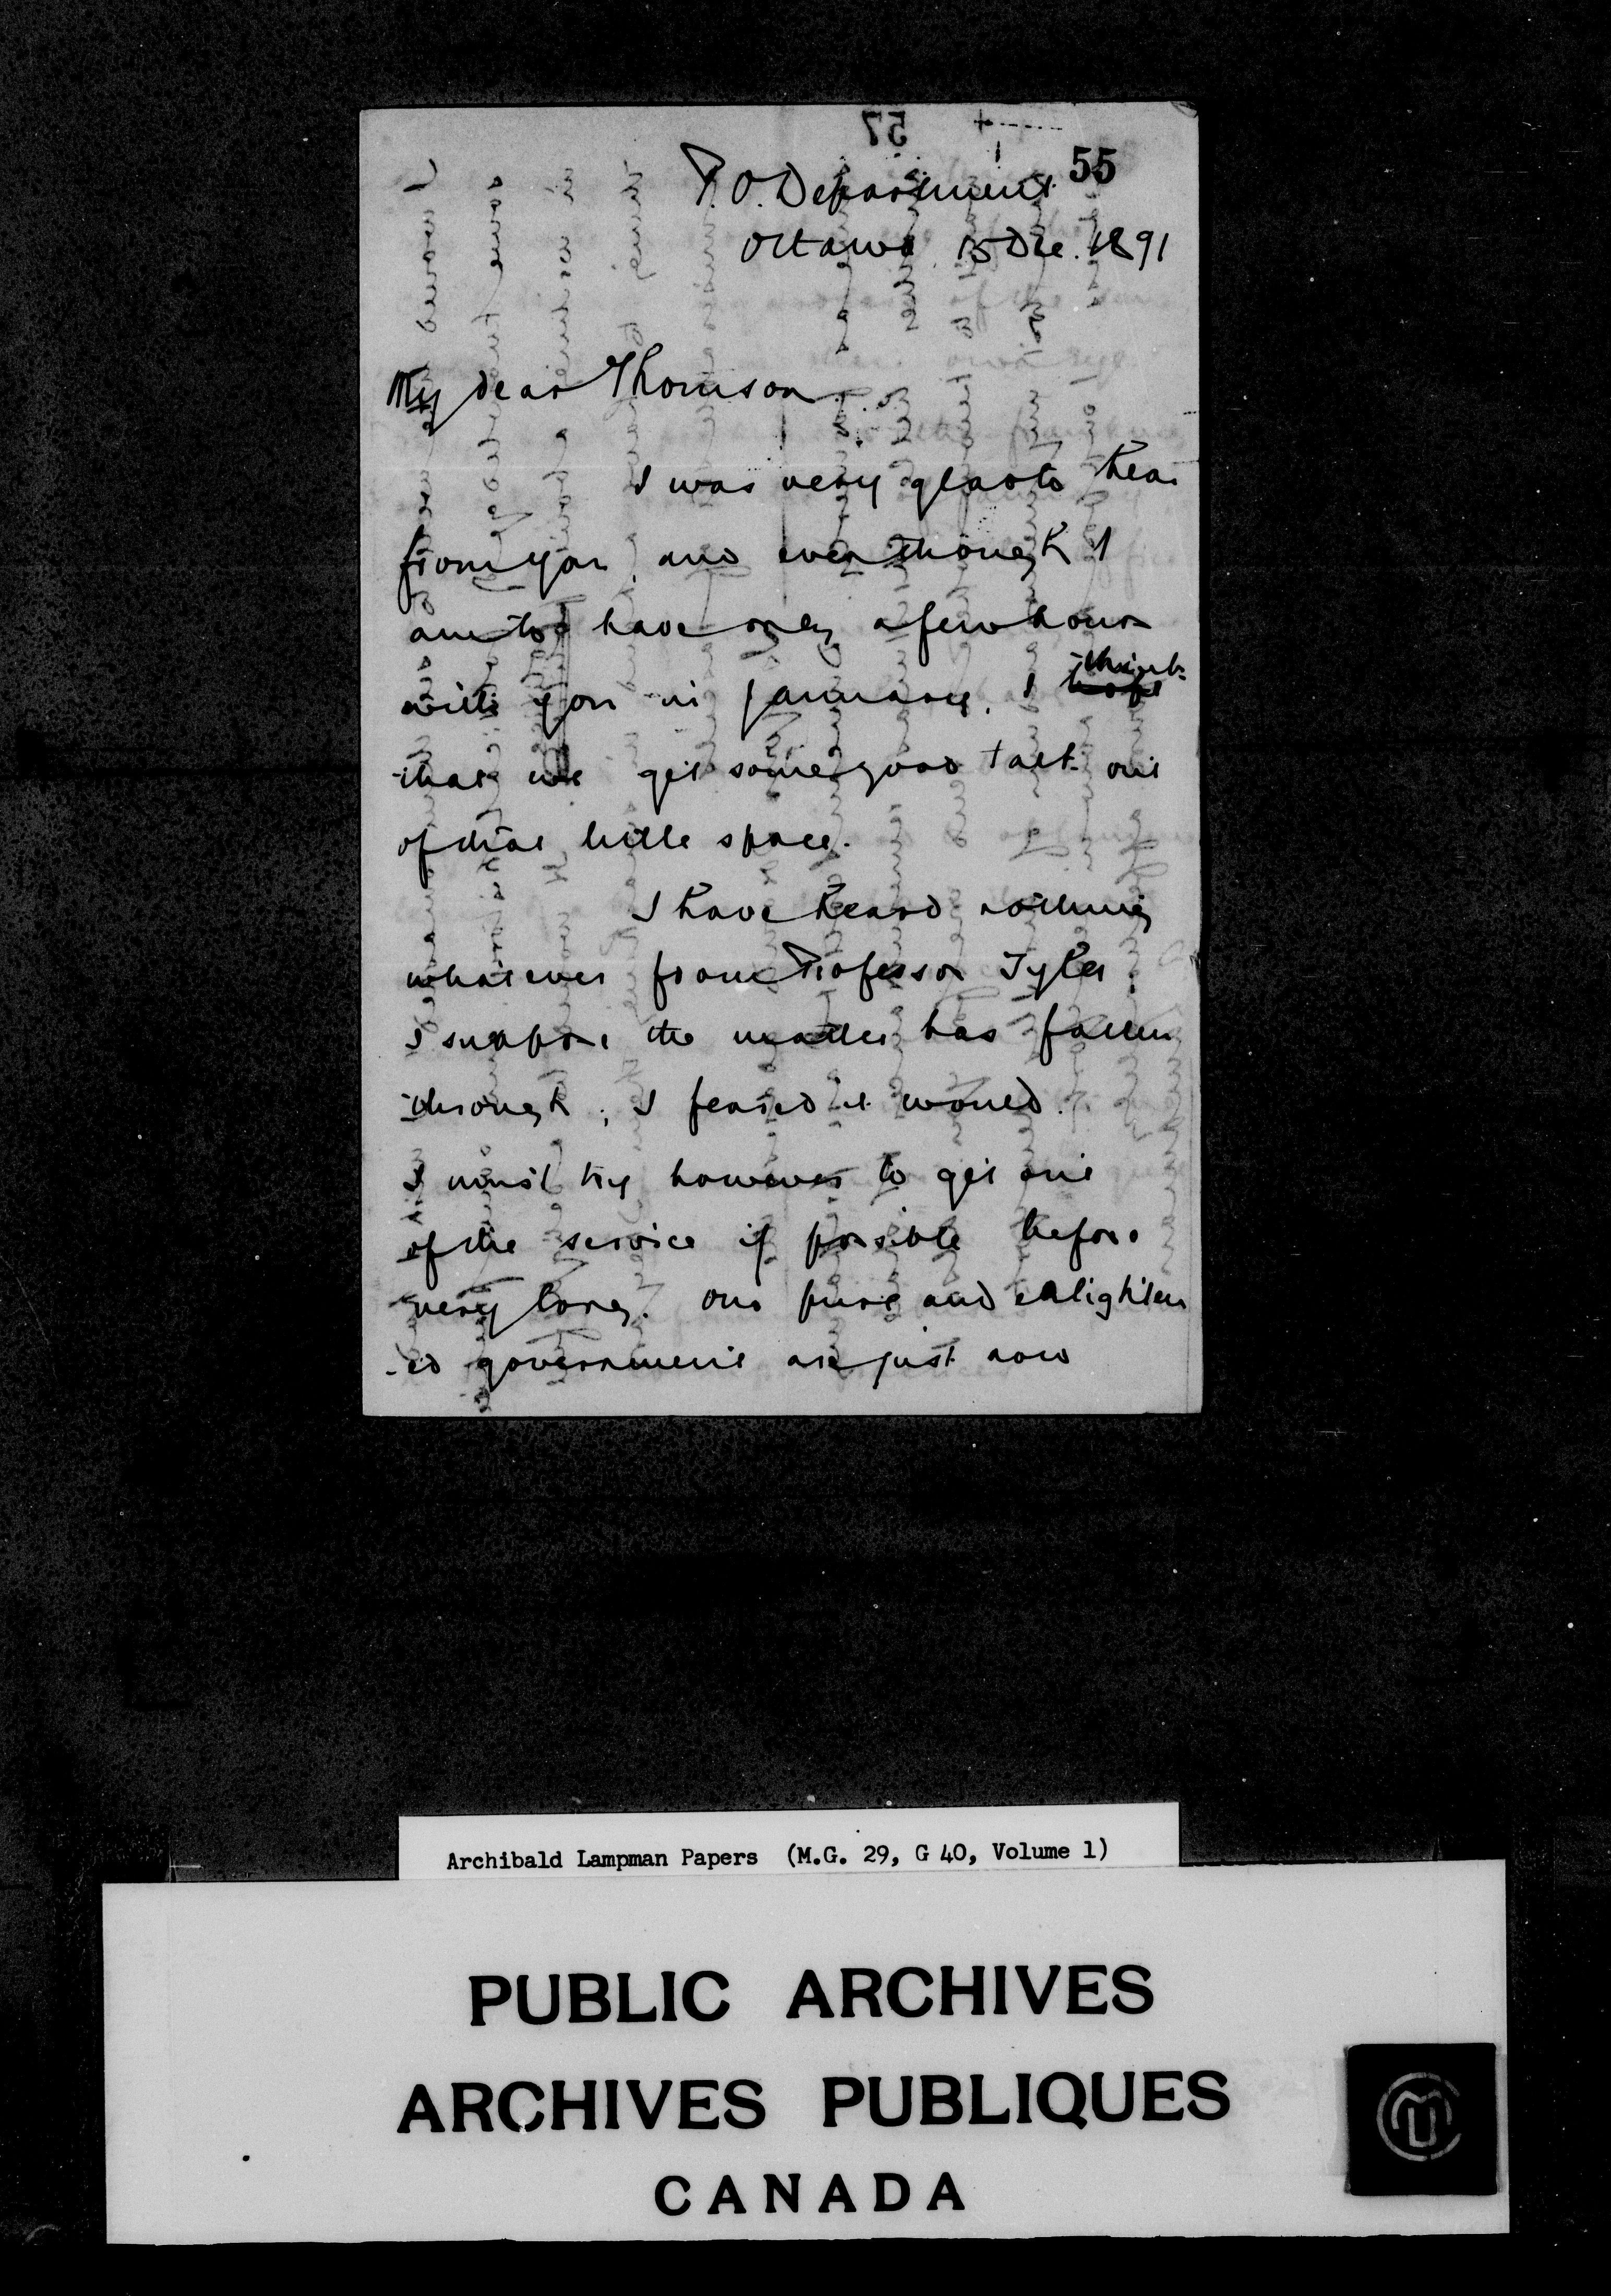 57
55
P.O. Department
Ottawa 15 Dec. 1891
My dear Thomson
I was very glad to hear
from you, and even though I
am to have only a few hours
with you in January, I think
that we get some good talk out
of that little space.
I have heard nothing
whatever from Professor Tyler.
I suppose the matter has fallen
through; I feared it would.
I must try however to get out
of the service if possible before
very long. Our pure and enlighten
-ed government are just now
Archibald Lampman Papers (M.G. 29, G 40, Volume 1)
PUBLIC ARCHIVES
ARCHIVES PUBLIQUES
CANADA